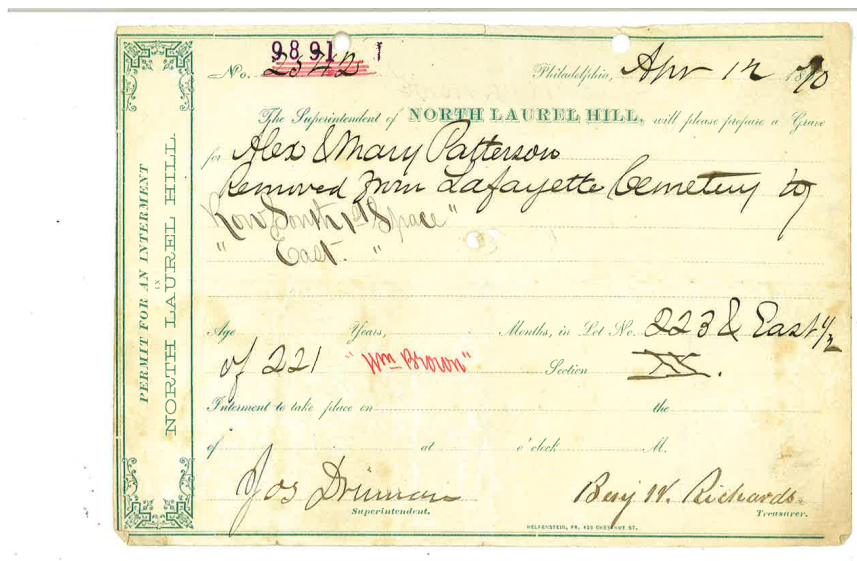 PERMIT FOR AN INTERMENT
IN
NORTH LAUREL HILL.
9891
No. 2542
Philadelphia, Apr 12 1870
The Superintendent of NORTH LAUREL HILL, will please prepare a Grave
for Alex & Mary Patterson
Removed from Lafayette Cemetery to
Row South 1st Space "
" East. "
Age Years, Months, in Lot No. 223 & East 1/2
of 221 "Wm Brown" Section XX.
Interment to take place on the
of at o'clock M.
Jos Benj W. Richards
Superintendent. Treasurer.
HELFENSTEIN, PR. CHESTNUT ST.